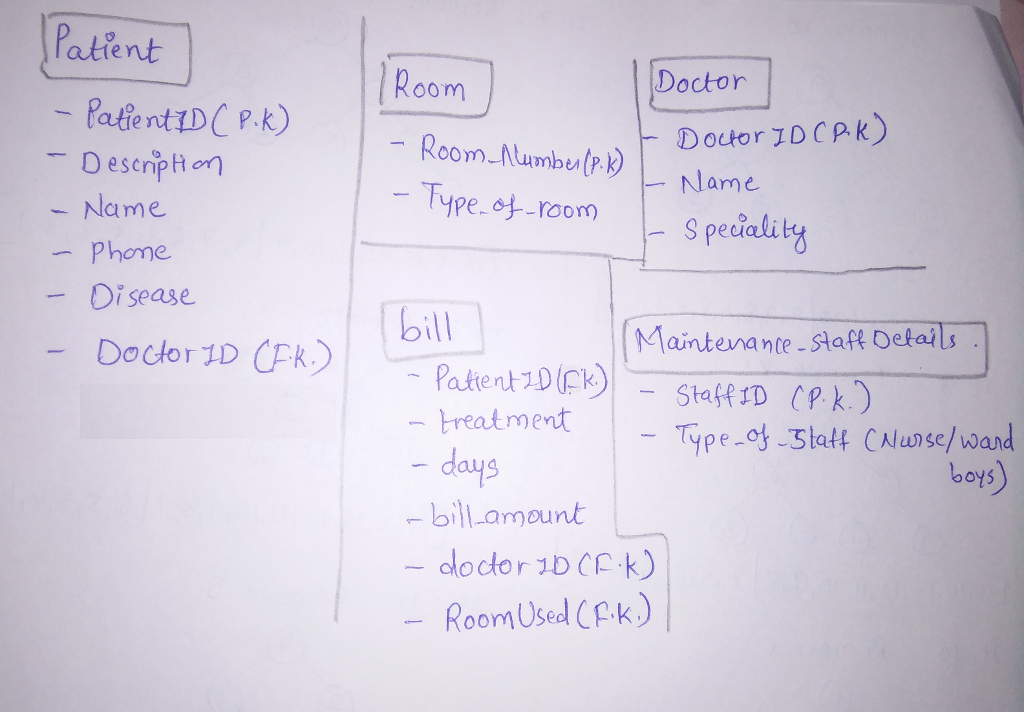 Patient
- PatientID (P.K)
- Description
- Name
- Phone
- Disease
- DoctorID (F.K.)
Room
- Room_Number (P.K)
- Type_of_room
Doctor
- DoctorID (P.K)
- Name
- Speciality
bill
- PatientID (F.K.)
- treatment
- days
- bill_amount
- doctorID (F.K)
- RoomUsed (F.K.)
Maintenance_staffDetails.
- StaffID (P.K.)
- Type_of_Staff (Nurse/ward
boys)